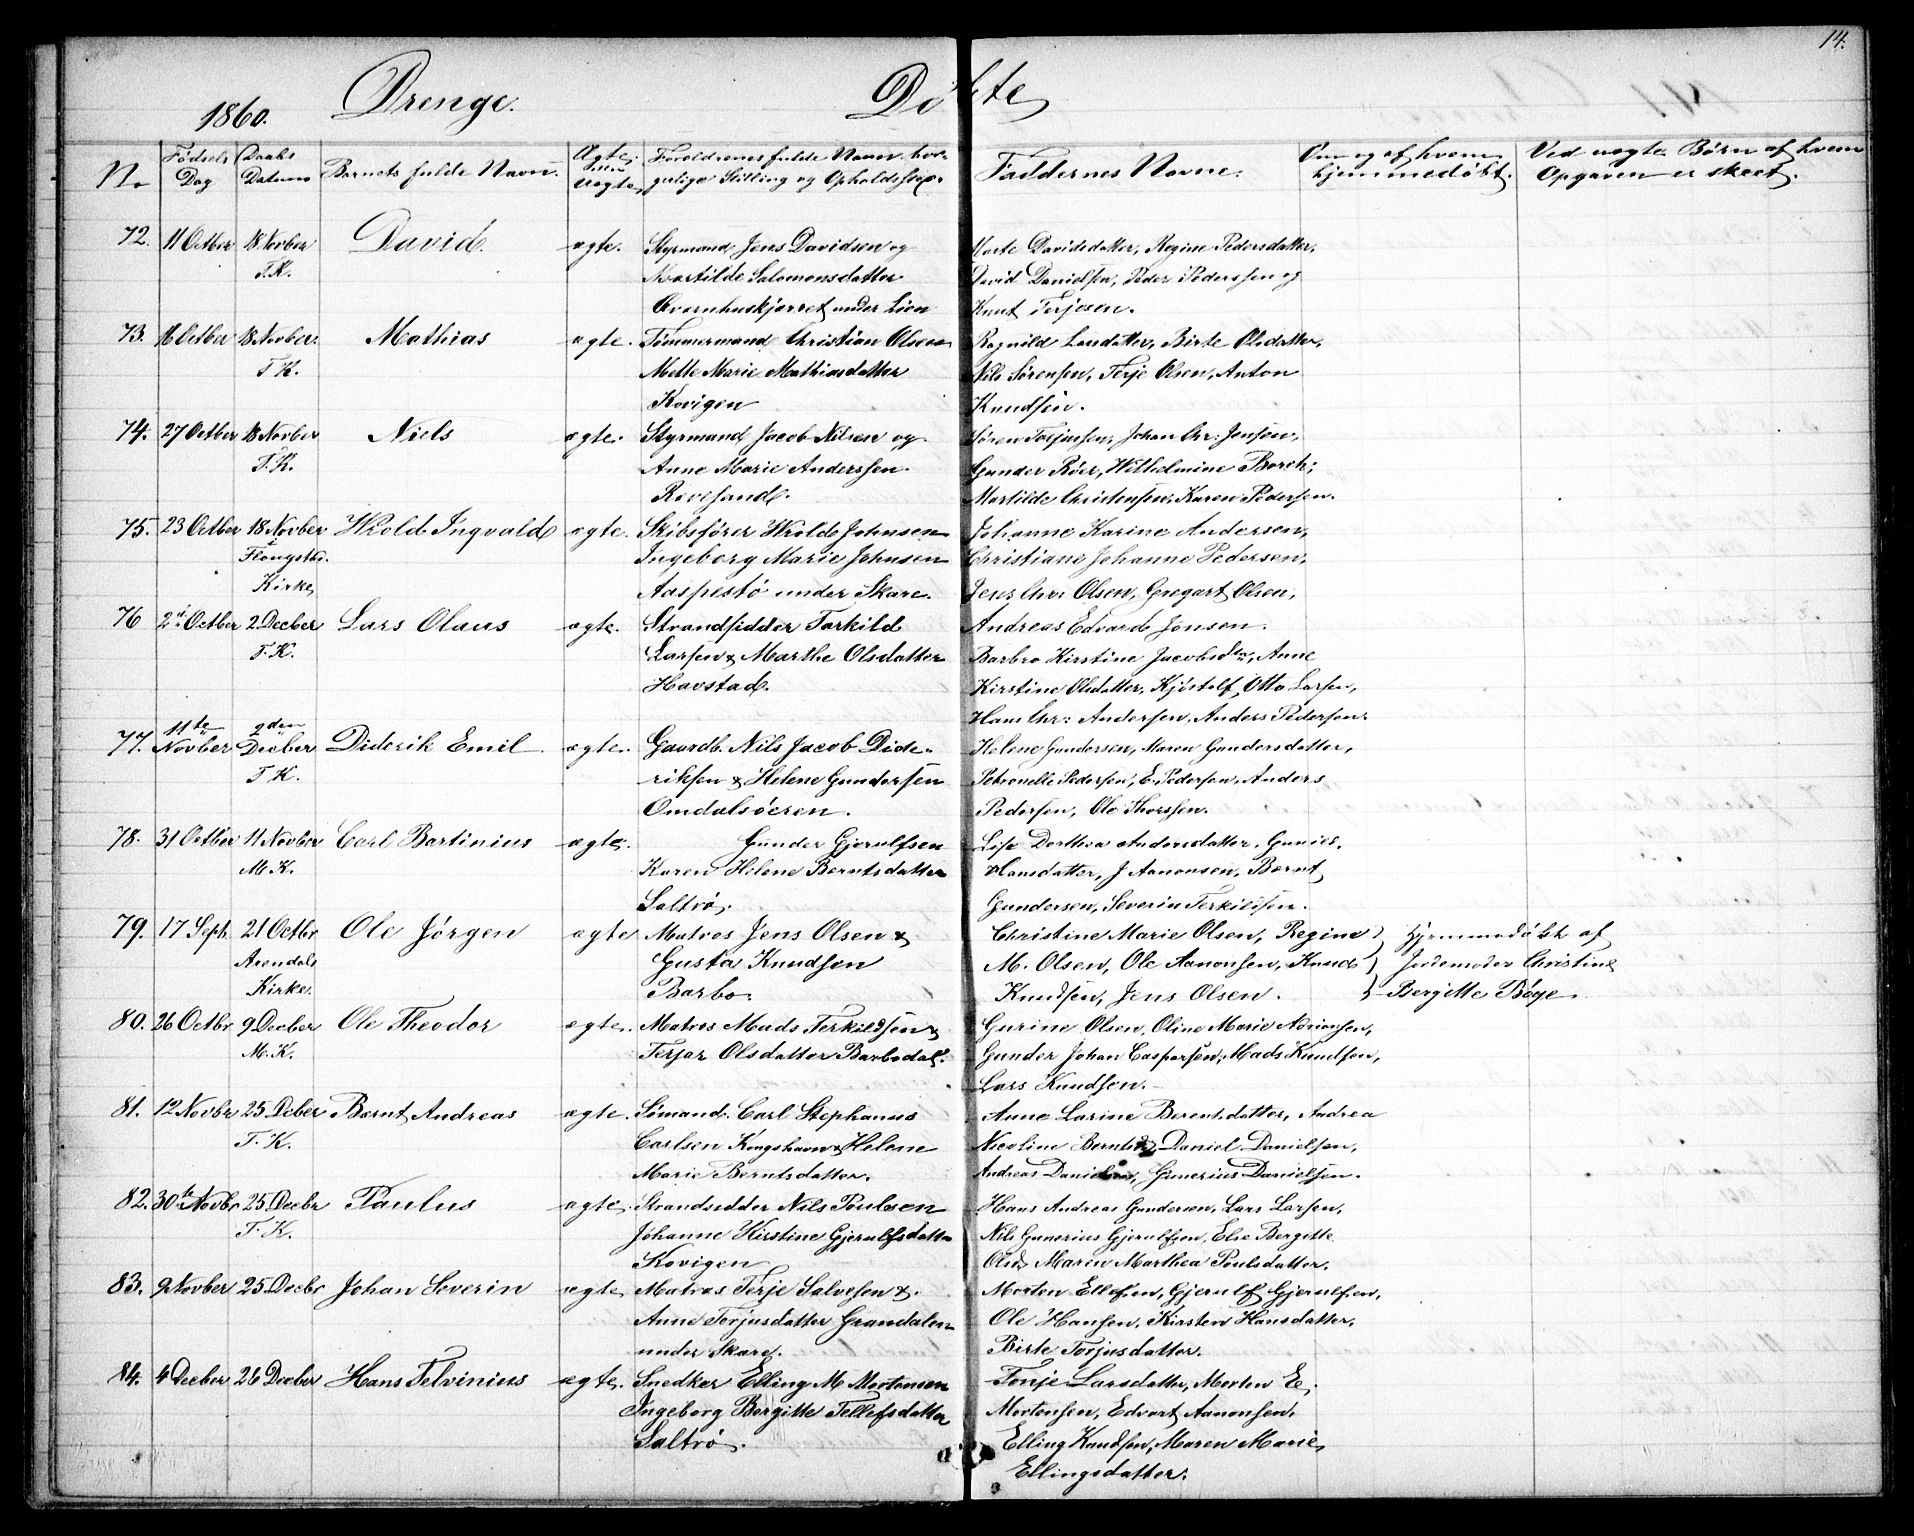 14.
1860. Drenge. Døbte
No Fødsels Dag Daabs Datum Barnets fulde Navn. Ægte eller uægte Foreldrenes fulde Navn, bor-gerlige Stilling og Opholdssted. Faddernes Navne. Om og af hvem hjemmedøbt. Ved uægte Børn af hvem Opgaven er skeet.
72. 11 Octber 18 Novber David. ægte. Styrmand Jens Davidsen og Marte Davidsdatter, Regine Pedersdatter,
T. K. Martilde Salomonsdatter David Danielsen, Peder Pederssen og
under Lien Knut Terjesen.
73. 16 Octber 18 Novber. Mathias ægte. Tømmermand Christian Olsen Ragnild Larsdatter, Birte Olsdatter,
T K. Mette Marie Mathiasdatter Nils Sørensen, Terje Olsen, Anton
Kovigen Knudsen.
74. 27 Octber 18 Novber Niels ægte. Styrmand Jacob Nilsen og Søren Torjussen, Johan Chr: Jensen,
T. K. Anne Marie Anderssen. Gunder Röer, Wilhelmine Borch;
Revesand. Martilde Christensen, Karen Pedersen.
75. 23 Octber 18 Novber Wrold Ingvald ægte. Skibsfører Wrold Johnsen Johanne Karine Andersen,
i Flougstad. Ingeborg Marie Johnsen Christiane Johanne Pedersen,
Kirke Aaspestø under Skare. Jens Chr: Olsen, Gregart Olsen,
76 2d Octber 2 Decber Lars Olaus ægte. Strandsidder Tarkild Andreas Edvard Jensen.
T. K. Larsen & Marthe Olsdatter Barbro Kirstine Jacobsdtr, Anne
Havstad. Kirstine Olsdatter, Kjøstolf, Otto Larsen,
Hans Chr: Andersen, Anders Pedersen.
77. 11te Novber 2den Decber Diderik Emil ægte. Gaardb. Nils Jacob Dide- Helene Gundersen, Maren Gundersdatter,
T K. riksen & Helene Gundersen Petronelle Pedersen, E. Pedersen, Anders
Omdalsöeren. Pedersen, Ole Thorssen.
78. 31 Octber 11 Novber Carl Bartinius ægte. Gunder Gjerulfsen Lise Dorthea Andersdatter, Gunild
M. K. Karen Helene Berntsdatter Hansdatter, J Aanonsen, Bernt
Saltrø. Gundersen, Severin Terkildsen.
79. 17 Septb 21 Octbr Ole Jörgen ægte Matros Jens Olsen & Christine Marie Olsen, Regine Hjemmedøbt af
Arendals Gusta Knudsen M. Olsen, Ole Aanonsen, Knud Jordemoder Christine
Kirke. Barbo. Knudsen, Jens Olsen. Bergitte Böge.
80. 26 Octbr 9 Decber Ole Theodor ægte. Matros Mads Terkildsen & Gurine Olsen, Oline Marie Adriansen,
M. K. Terjar Olsdatter Barbodal. Gunder Johan Caspersen, Mads Knudsen,
Lars Knudsen.
81. 12 Novbr 25 Decber Bernt Andreas ægte. Sømand. Carl Stephanus Anne Larine Berentsdatter, Andrea
T. K. Carlsen Kongshavn & Helene Nicoline Berntsd, Daniel Danielsen,
Marie Berntsdatter. Andreas Danielsen, Gunerius Danielsen.
82. 30te Novbr 25 Decbr Paulus ægte. Strandsidder Nils Poulsen Hans Andreas Gundersen, Lars Larsen,
T. K. Johanne Kirstine Gjerulfsdatter Nils Gunerius Gjerulfsen, Else Bergitte
Kovigen Olsd, Maren Marthea Poulsdatter.
83. 9 Novber 25 Decbr Johan Severin ægte Matros Terje Salvesen & Morten Ellefsen, Gjerulf Gjerulfsen,
Anne Torjusdatter Grandalen Ole Hansen, Kirsten Hansdatter,
under Skare. Birte Torjusdatter.
84. 4 Decber 26 Decber Hans Telvinius ægte. Snedker Elling M Mortensen Tonje Larsdatter, Morten E.
Ingeborg Bergitte Tellefsdatter Mortensen, Edvart Aanonsen,
Saltrø. Elling Knudsen, Maren Marie
Ellingsdatter.